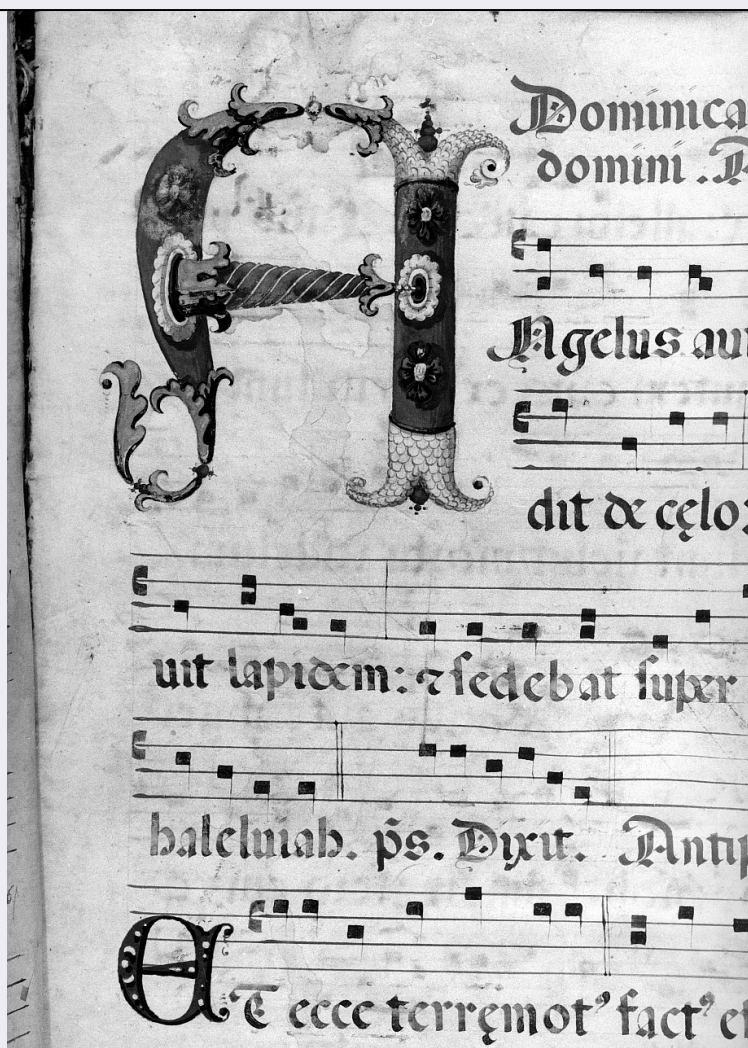 Dominica
domini .
Angelus au
dit de cęlo:
uit lapidem: ⁊ sedebat super
haleluiah. p̄s. Dixit. Antip
ET ecce terręmotꝰ factꝰ e